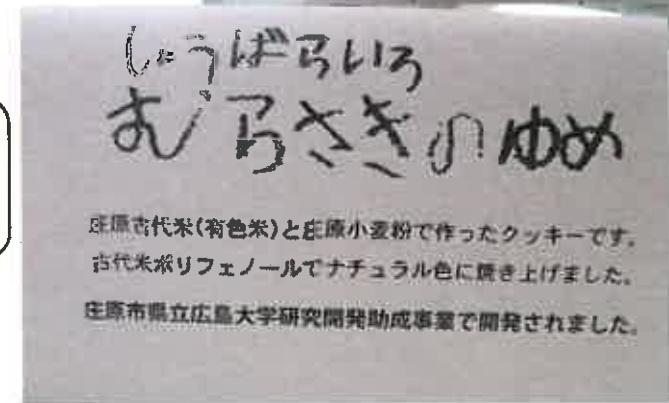 しょうばらいろ
むらさきのゆめ
庄原古代米(有色米)と庄原小麦粉で作ったクッキーです。
古代米ポリフェノールでナチュラル色に焼き上げました。
庄原市県立広島大学研究開発助成事業で開発されました。